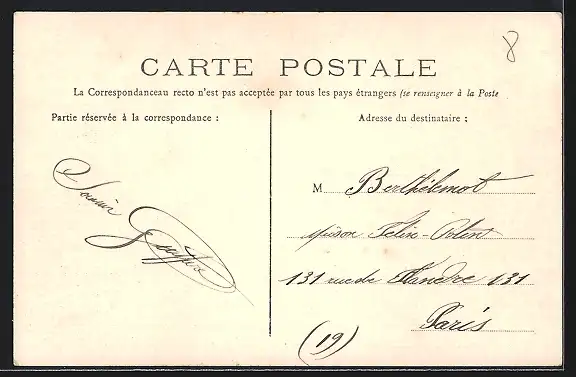 8
CARTE POSTALE
La Correspondanceau recto n'est pas acceptée par tous les pays étrangers (se renseigner à la Poste
Partie réservée à la correspondance :
Adresse du destinataire ;
M Berthélemot
131 rue de Flandre 131
Paris
(19)